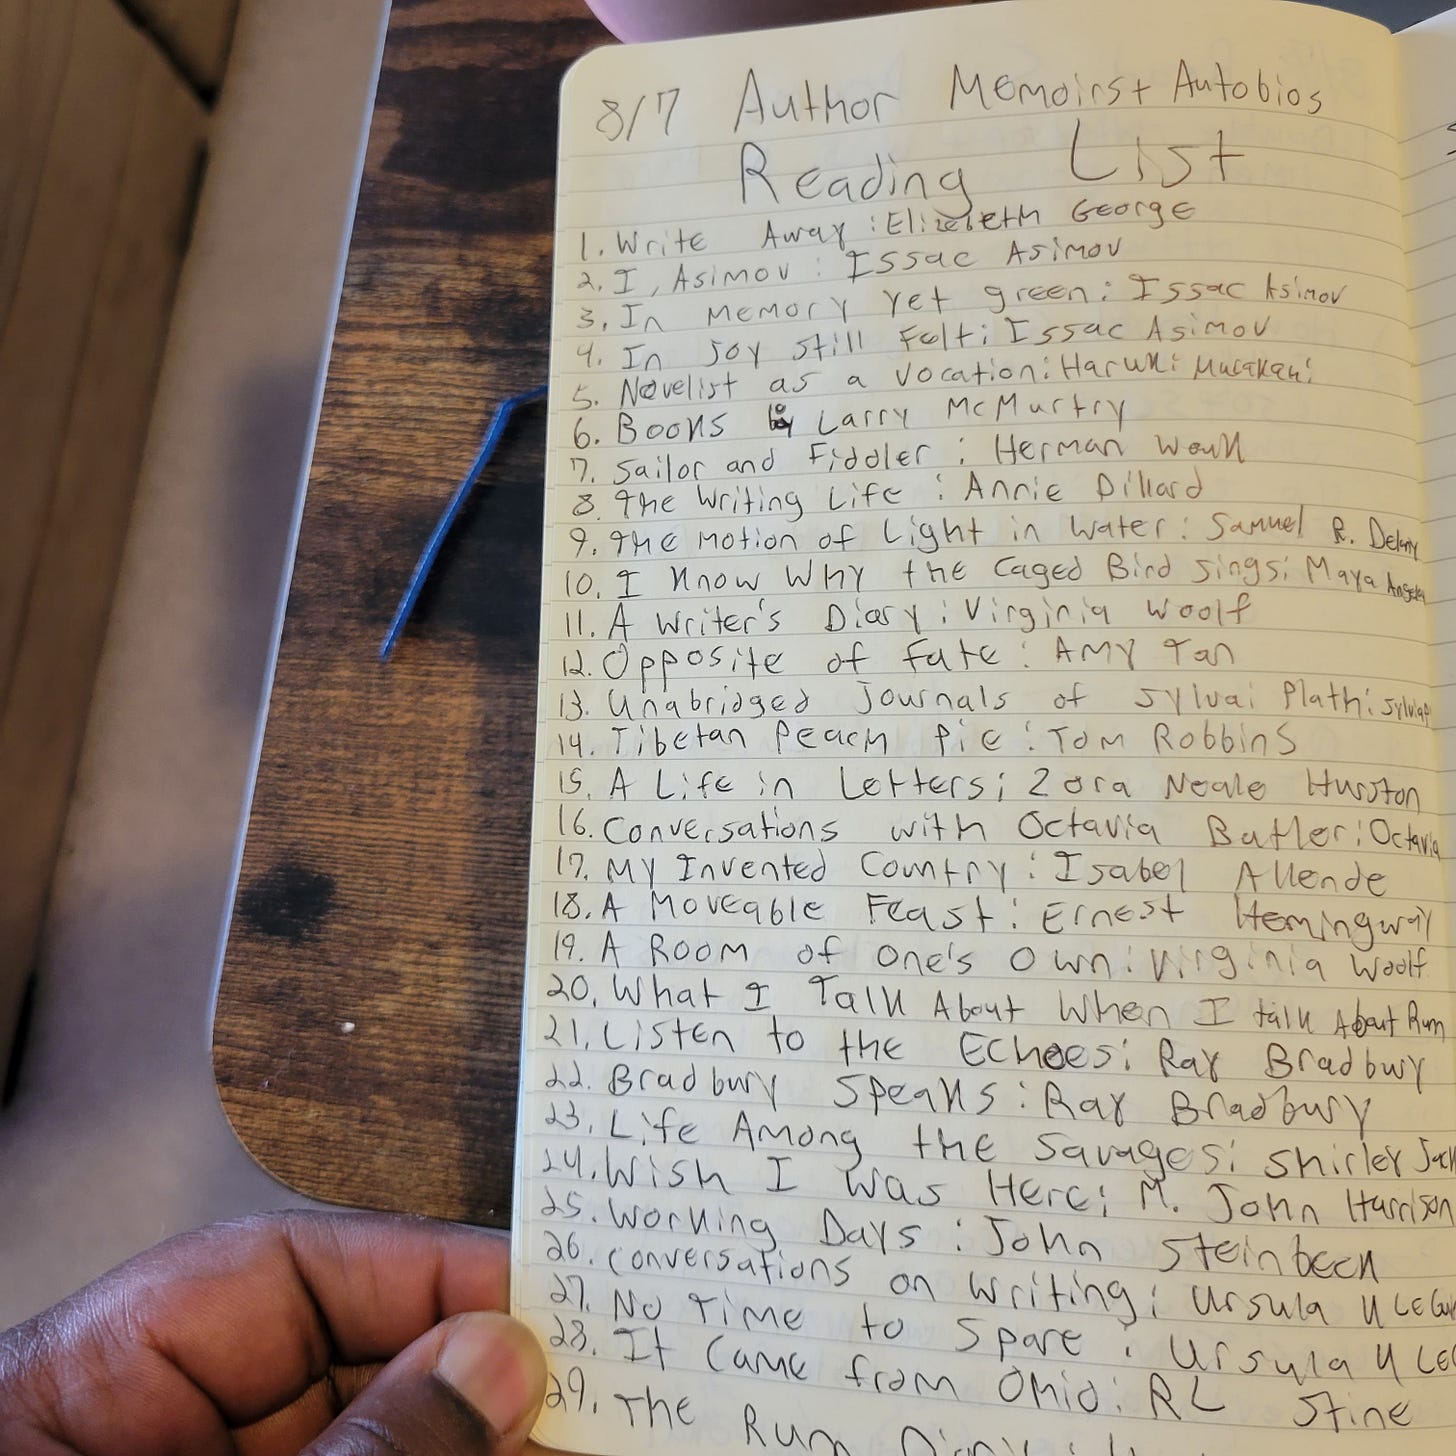 8/7 Author Memoirs+ Autobios
Reading List
1. Write Away : Elizebeth George
2. I, Asimov : Issac Asimov
3. In Memory yet green: Issac Asimov
4. In Joy Still Felt; Issac Asimov
5. Novelist as a vocation: Haruki Murakami
6. Books by Larry McMurtry
7. Sailor and Fiddler : Herman Wouk
8. The Writing Life : Annie Dillard
9. The Motion of Light in Water: Samuel R. Delany
10. I Know Why the Caged Bird Sings; Maya Angelou
11. A Writer's Diary : Virginia Woolf
12. Opposite of Fate : Amy Tan
13. Unabridged Journals of Sylvai Plath:
14. Tibetan Peach Pie : Tom Robbins
15. A Life in Letters; Zora Neale Hurston
16. Conversations with Octavia Butler: Octavia
17. My Invented Country: Isabel Allende
18. A Moveable Feast : Ernest Hemingway
19. A Room of One's Own: Virginia Woolf
20. What I Talk About When I talk About Runn
21. Listen to the Echoes: Ray Bradbury
22. Bradbury Speaks : Ray Bradbury
23. Life Among the Savages; Shirley Jack
24. Wish I was Here; M. John Harrison
25. Working Days : John Steinbeck
26. Conversations on Writing; Ursula K LeGui
27. No Time to Spare : Ursula K LeG
28. It Came from Ohio: RL Stine
29. The Rum Diary :